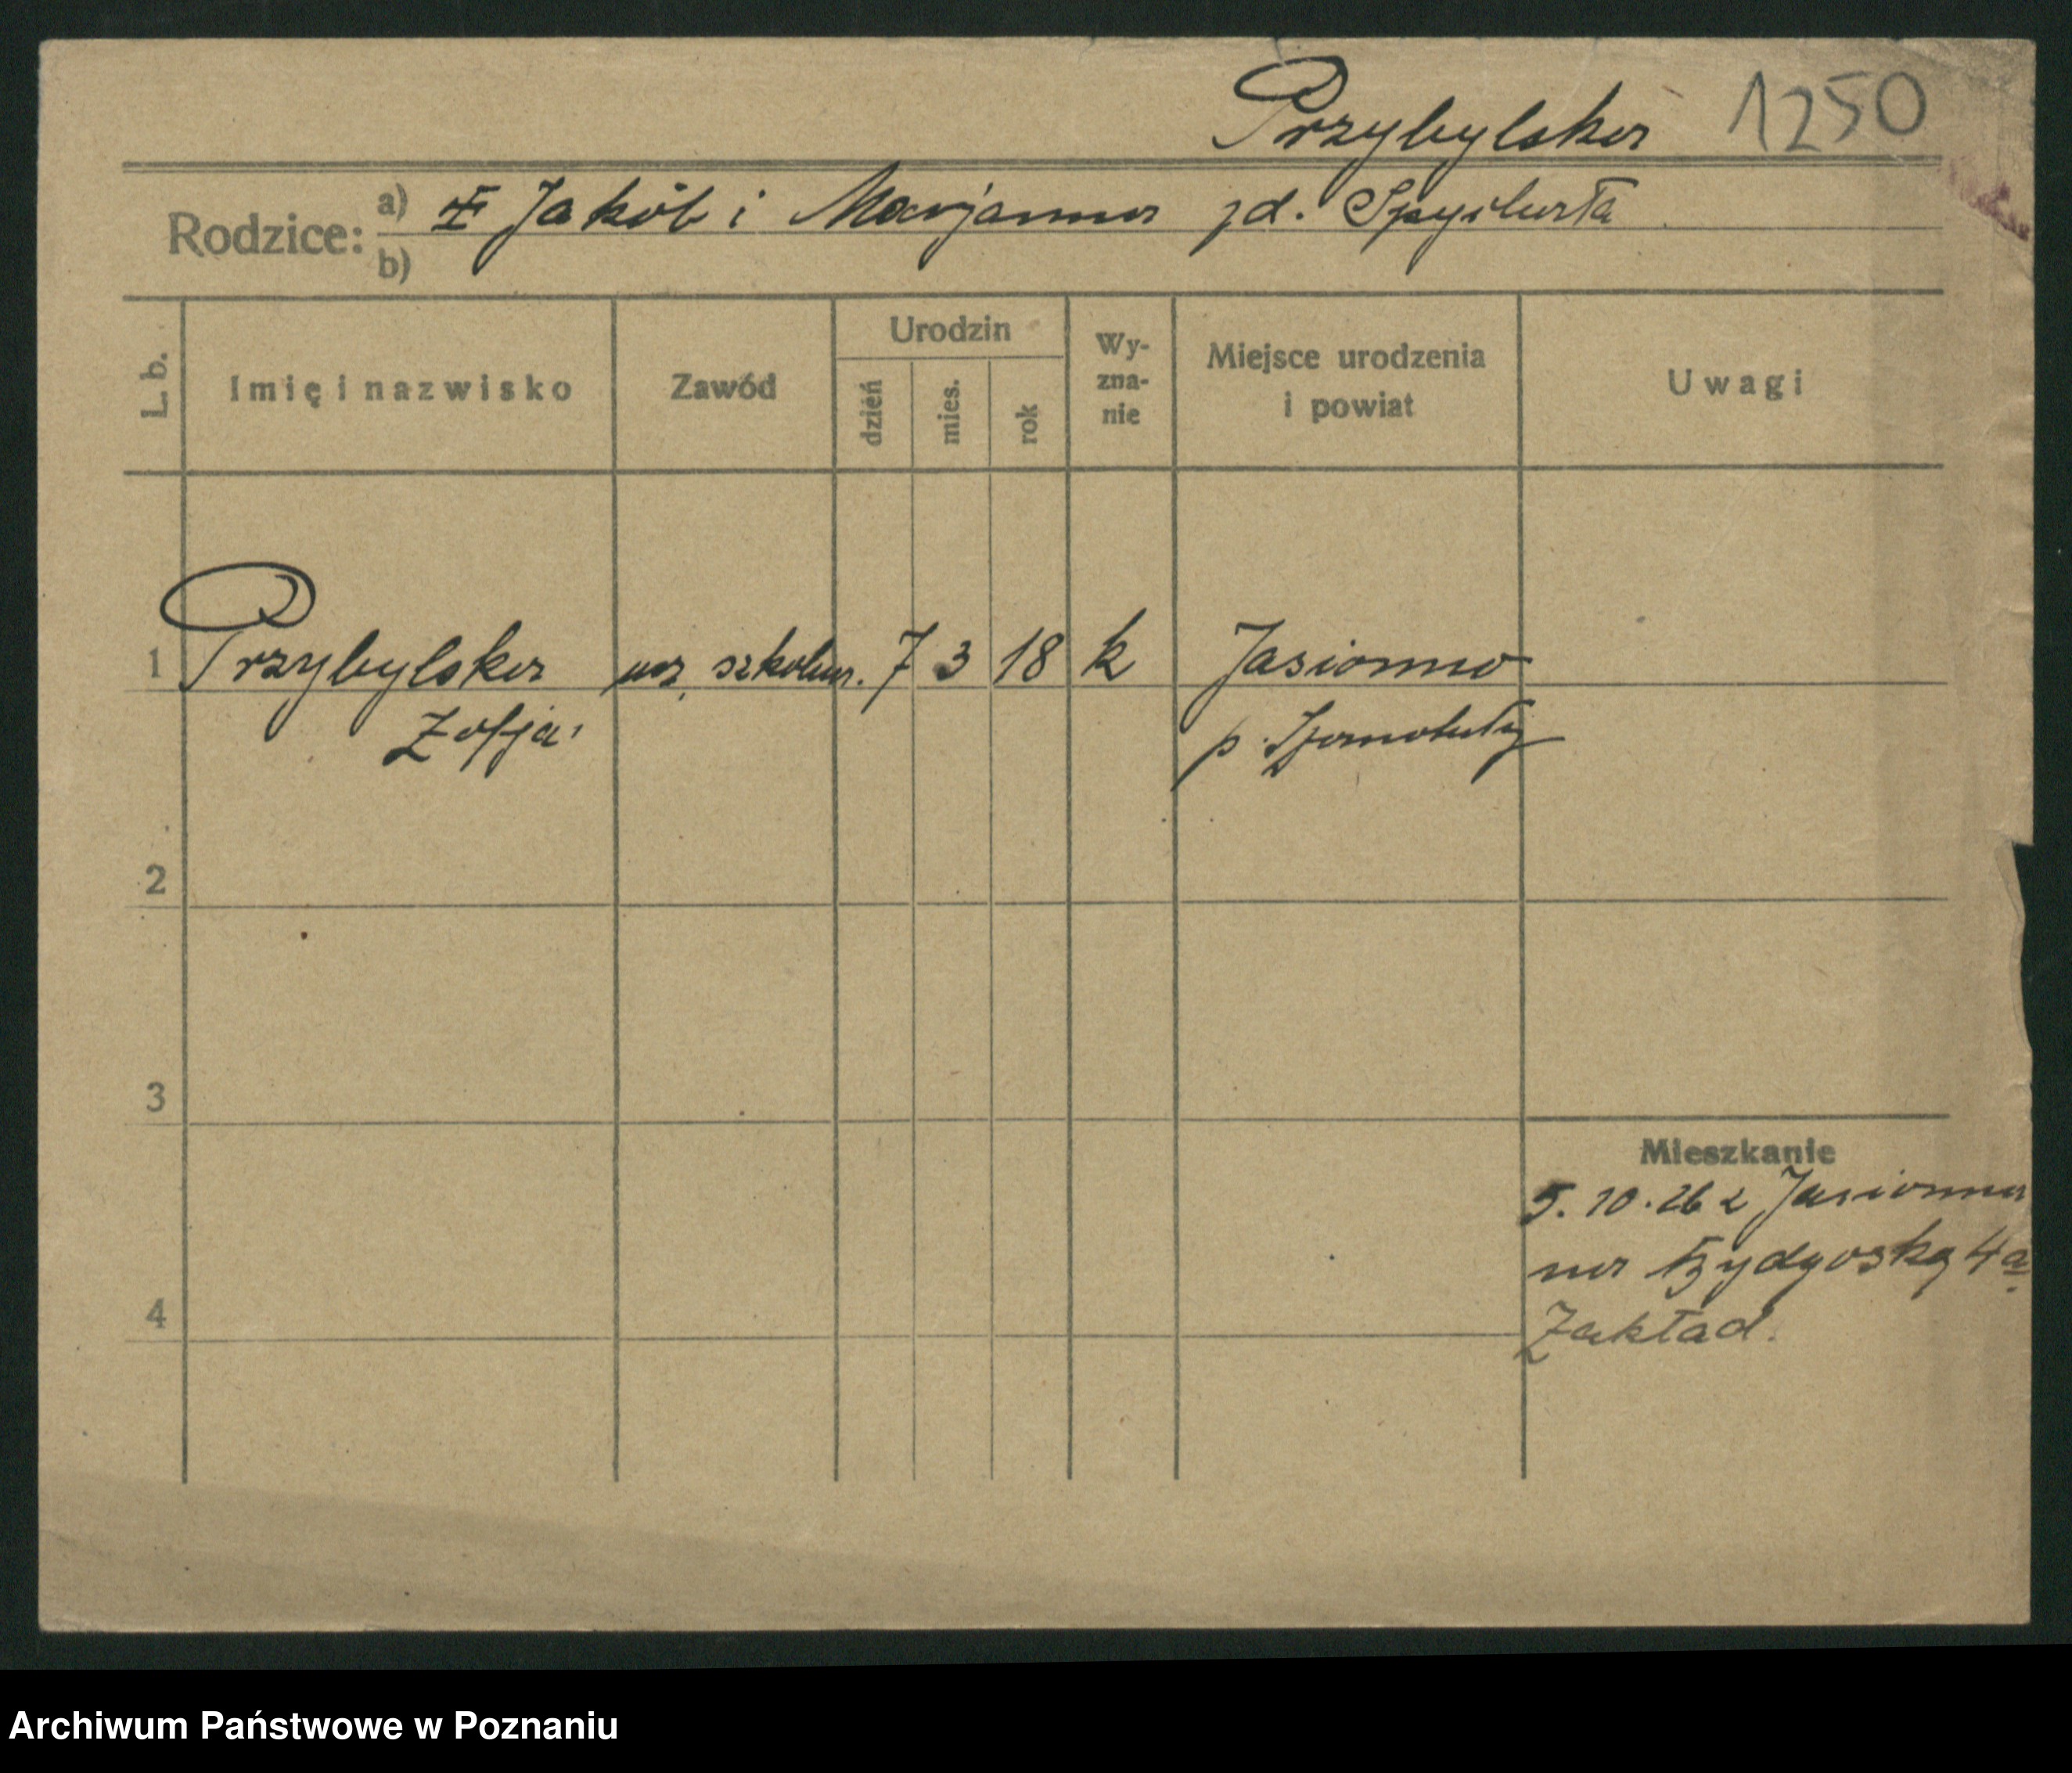 Przybylska 1250
Rodzice: a) Jakób i Marjanna zd.
b)
L. b.
Imię i nazwisko
Zawód
Urodzin
dzień
mies.
rok
Wy-
zna-
nie
Miejsce urodzenia
i powiat
Uwagi
1 Przybylska ucz. szkolna. 7 3 18 k Jasionna
Zofja
p. Szamotuły
2
3
4
Mieszkanie
5.10.26 z Jasionna
na Bydgoską 4a
Zakład.
Archiwum Państwowe w Poznaniu